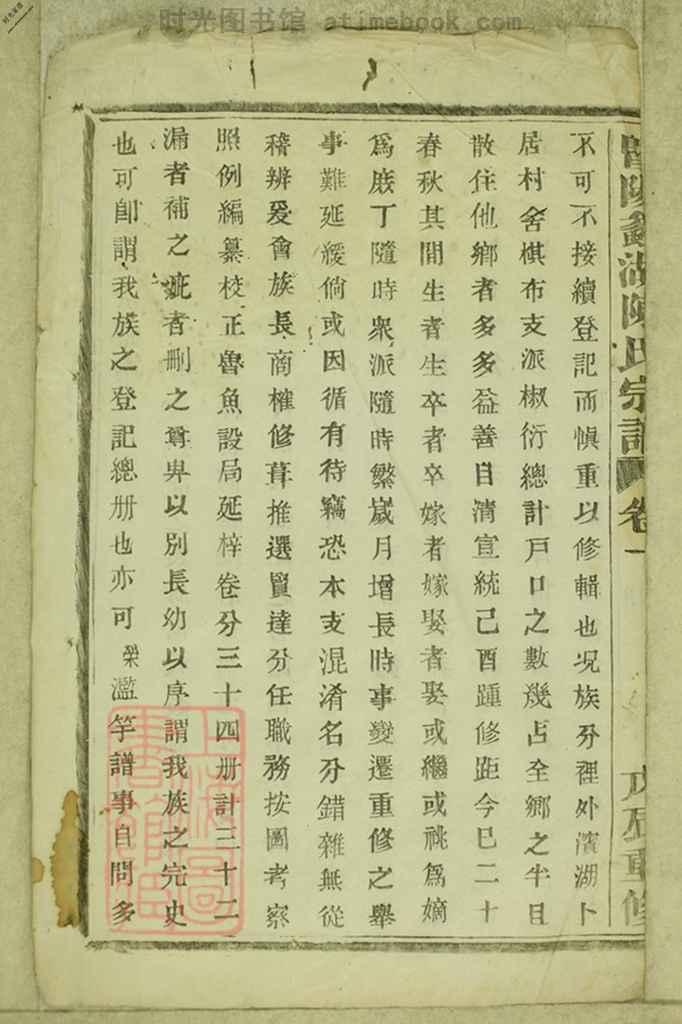 时光图书馆 atimebook.com
暨陽𧑐湖陳氏宗譜 卷一 戊辰重修
不可不接續登記而慎重以修輯也况族分裡外濱湖卜
居村舍棋布支派椒衍總計戸口之數幾占全鄉之半且
散住他鄉者多多益善目清宣統己酉踵修距今巳二十
春秋其間生者生卒者卒嫁者嫁娶者娶或繼或祧爲嫡
爲庶丁隨時衆派隨時繁嵗月增長時事變遷重修之舉
事難延緩倘或因循有待竊恐本支混淆名分錯雜無從
稽辨爰會族長商榷修葺推選賢達分任職務按圖考察
照例編纂校正魯魚設局延梓卷分三十四册計三十二
漏者補之疵者删之尊卑以别長幼以序謂我族之完史
也可卽謂我族之登記總册也亦可榮濫竽譜事自問多